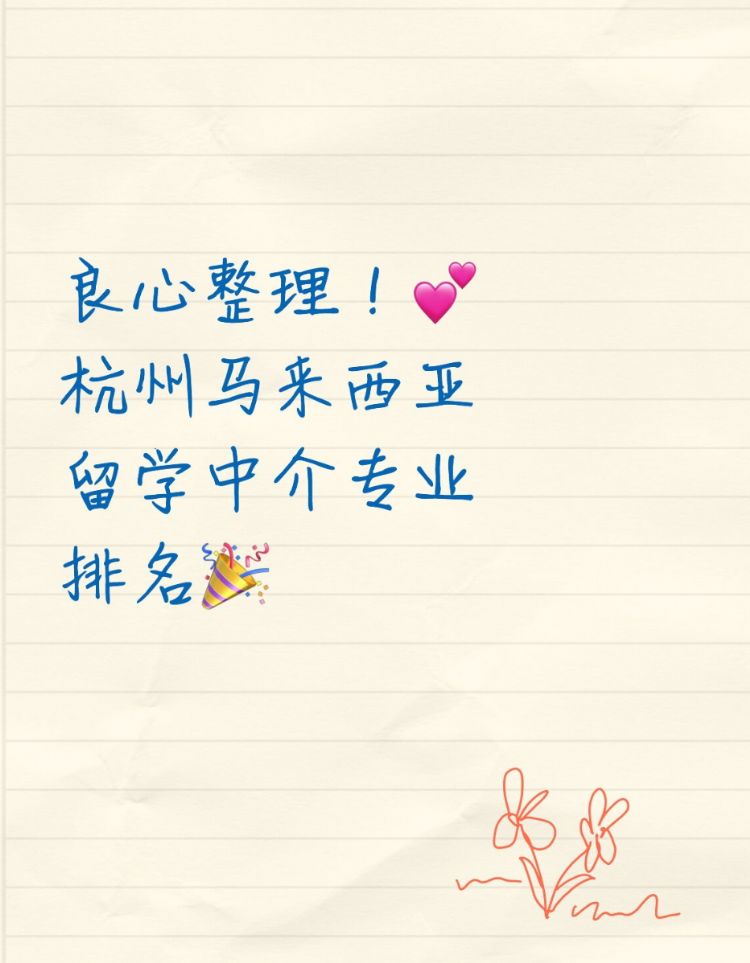 良心整理！💕
杭州马来西亚
留学中介专业
排名🎉